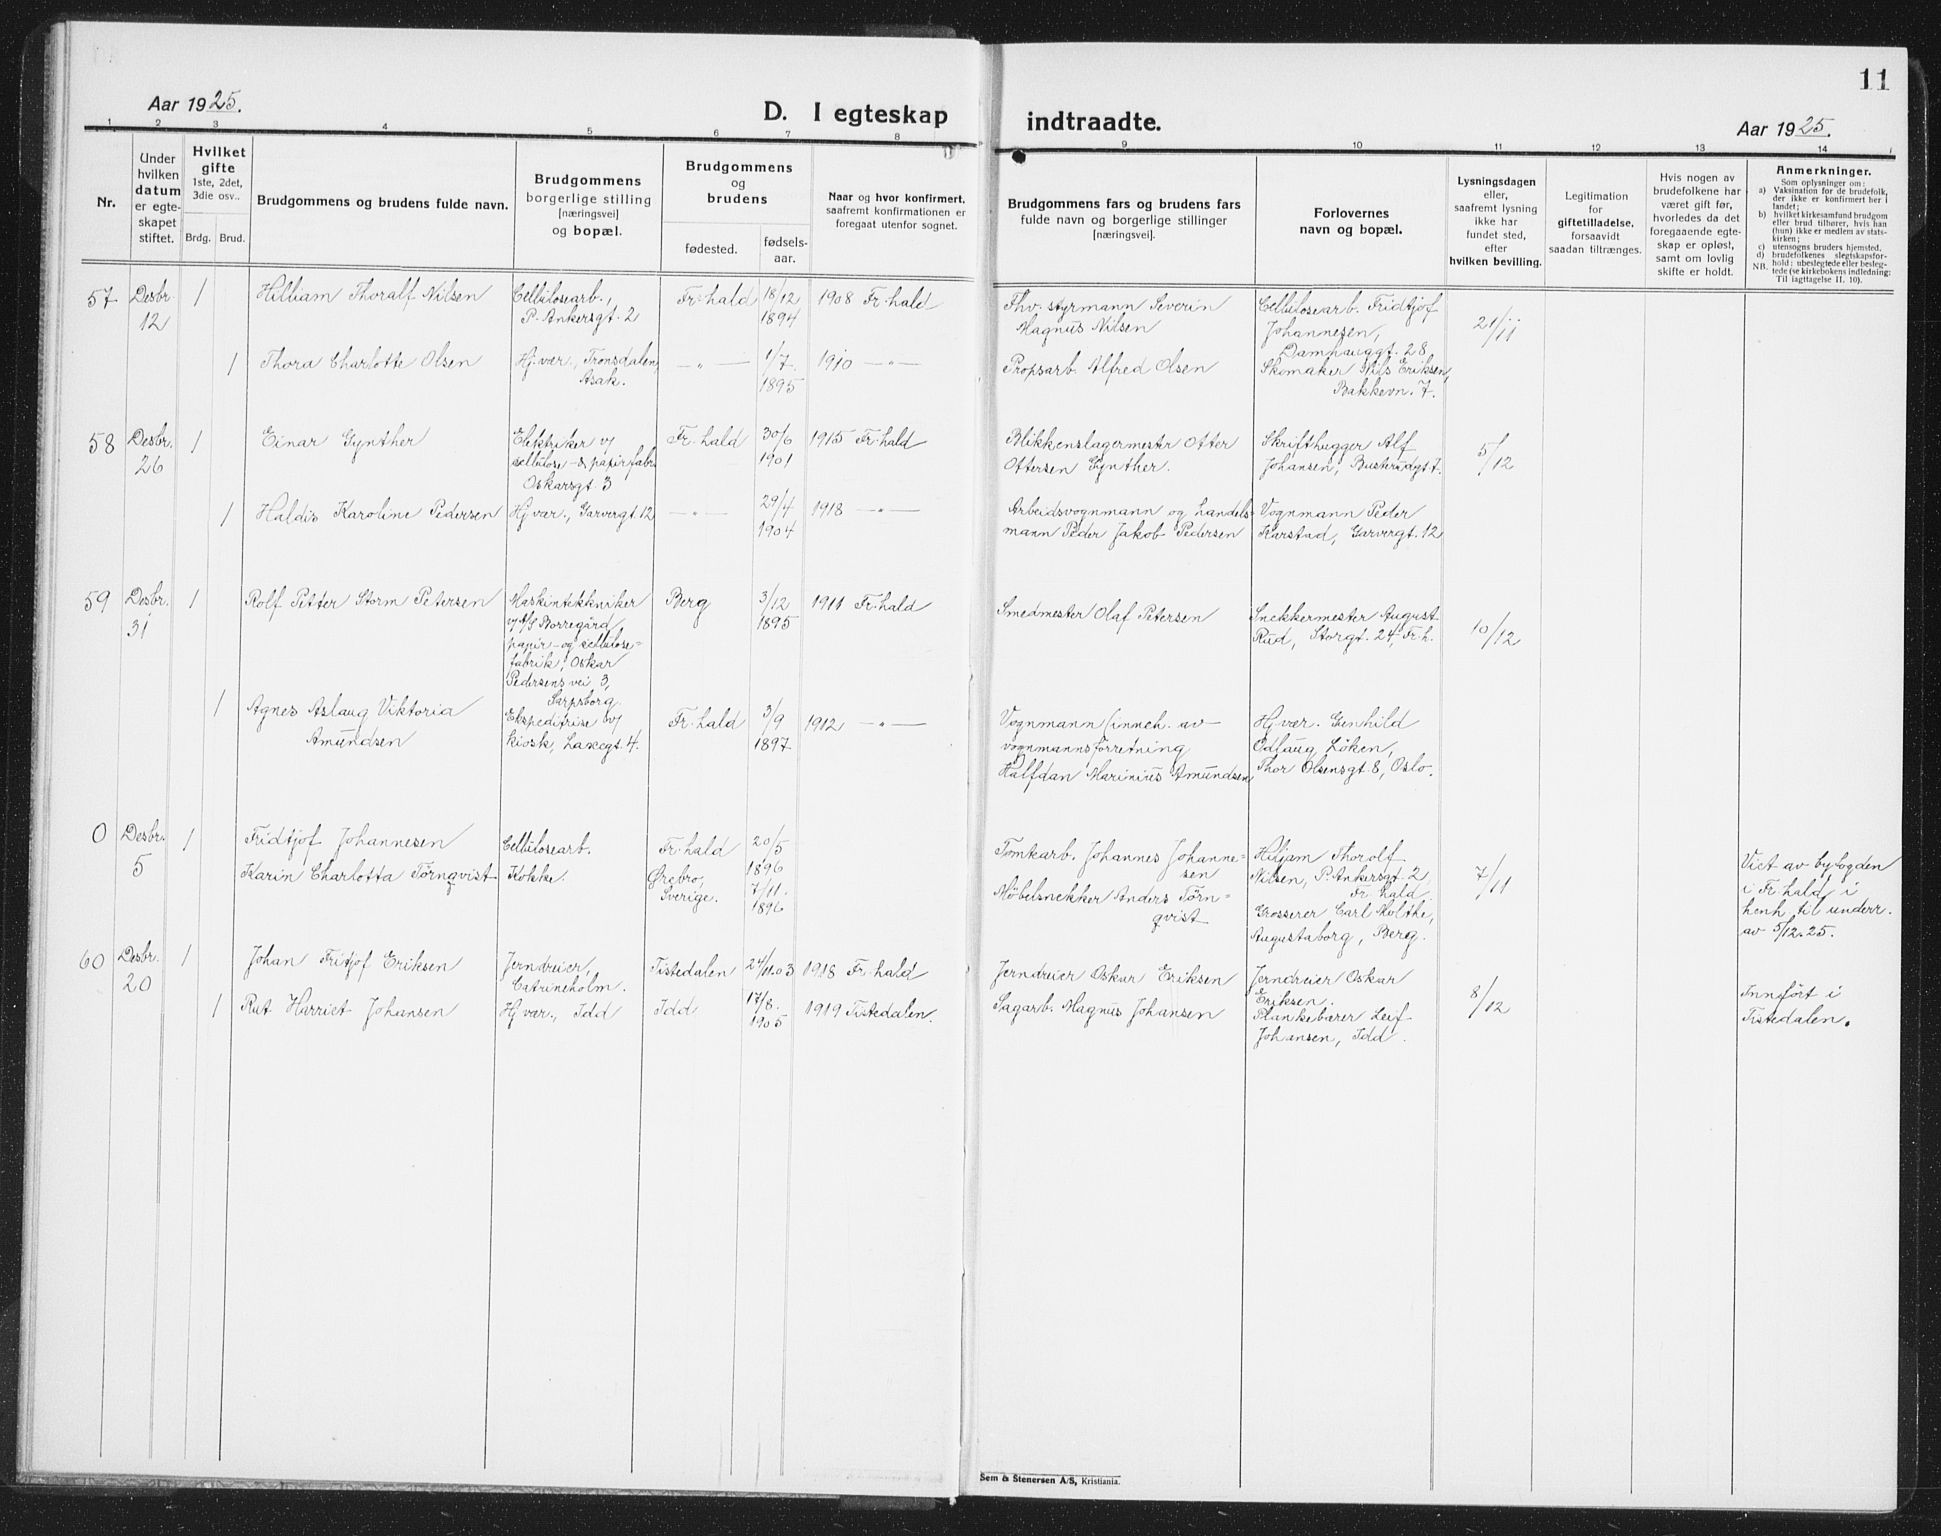 11
Aar 1925.
D. I egteskap indtraadte.
Aar 1925.
1 2 3 4 5 6 7 8 9 10 11 12 13 14
Nr.
Under hvilken datum er egteskapet stiftet.
Hvilket gifte 1ste, 2det, 3die osv..
Brdg. Brud.
Brudgommens og brudens fulde navn.
Brudgommens borgerlige stilling [næringsvei] og bopæl.
Brudgommens og brudens
fødested. fødsels-aar.
Naar og hvor konfirmert, saafremt konfirmationen er foregaat utenfor sognet.
Brudgommens fars og brudens fars fulde navn og borgerlige stillinger [næringsvei].
Forlovernes navn og bopæl.
Lysningsdagen eller, saafremt lysning ikke har fundet sted, efter hvilken bevilling.
Legitimation for giftetilladelse, forsaavidt saadan tiltrænges.
Hvis nogen av brudefolkene har været gift før, hvorledes da det foregaaende egteskap er opløst, samt om lovlig skifte er holdt.
Anmerkninger.
Som oplysninger om:
a) Vaksination for de brudefolk, der ikke er konfirmert her i landet;
b) hvilket kirkesamfund brudgom eller brud tilhører, hvis han (hun) ikke er medlem av statskirken;
c) utensogns bruders hjemsted.
d) brudefolkenes slegtskapsforhold: ubeslegtede eller beslegtede (se kirkebokens indledning:
NB. Til iagttagelse II. 10).
57 Desbr. 12
1 Hilliam Thoralf Nilsen
Cellulosearb.,
P. Ankersgt. 2
Fr.hald 18/12 1894
1908 Fr.hald
Fhv. styrmann Severin
Magnus Nilsen
Cellulosearb. Fridtjof
Johannesen,
Damhauggt. 28
21/11
1 Thora Charlotte Olsen
Hj.vær., Tronsdalen,
Asak.
— „ — 1/7 1895
1910 — „ —
Propsarb. Alfred Olsen
Skomaker Nils Eriksen,
Bakkevn. 7.
58 Desbr. 26
1 Einar Gynther
Elektriker v/
cellulose- & papirfabr.
Oskarsgt. 3
Fr.hald 30/6 1901
1915 Fr.hald
Blikkenslagermester Otter
Ottersen Gynther.
Skrifthugger Alf
Johansen, Busterudgt 7.
5/12
1 Haldis Karoline Pedersen
Hj.vær., Garvergt. 12
— „ — 29/4 1904
1918 — „ —
Arbeidsvognmann og Landels-
mann Peder Jakob Pedersen
Vognmann Peder
Karstad, Garvergt. 12
59 Desbr. 31
1 Rolf Petter Storm Petersen
Maskintekkniker
v/ A/S Borregård
papir- og cellulose-
fabrik, Oskar
Pedersens vei 3,
Sarpsborg.
Berg 3/12 1895
1911 Fr.hald
Smedmester Olaf Petersen
Snekkermester August
Rud, Storgt. 24, Fr.h.
10/12
1 Agnes Aslaug Viktoria
Amundsen
Ekspeditrise v/
kiosk, Langgt. 4.
Fr.hald 3/9 1897
1912 — „ —
Vognmann (inneh. av
vognmannsforretning
Halfdan Marinius Amundsen
Hj.vær. Gunhild
Odlaug Löken,
Thor Olsensgt. 8, Oslo.
0 Desbr. 5
1 Fridtjof Johannesen
Cellulosearb.
Fr.hald 20/5 1896
Tomkarb. Johannes Johanne-
sen
Hiljam Thorolf
Nilsen, P. Ankersgt. 2,
Fr.hald
7/11
Viet av byfogden
i Fr.hald i
henh. til underr.
av 5/12. 25.
Karin Charlotta Törnqvist
Kokke.
Ørebro,
Sverige.
7/11. 1896
Möbelsnekker Anders Törn-
qvist
Grosserer Carl Molthe,
Augustaborg, Berg.
60 Desbr. 20
1 Johan Fritjof Eriksen
Jerndreier,
Catrineholm.
Tistedalen 24/11.03
1918 Fr.hald
Jerndreier Oskar Eriksen
Jerndreier Oskar
Eriksen.
8/12
Innfört i
Tistedalen.
1 Rut Harriet Johansen
Hj.vær., Idd
Idd 17/8. 1905
1919 Tistedalen.
Sagarb. Magnus Johansen
Plankebærer Leif
Johansen, Idd.
Sem & Stenersen A/S, Kristiania.